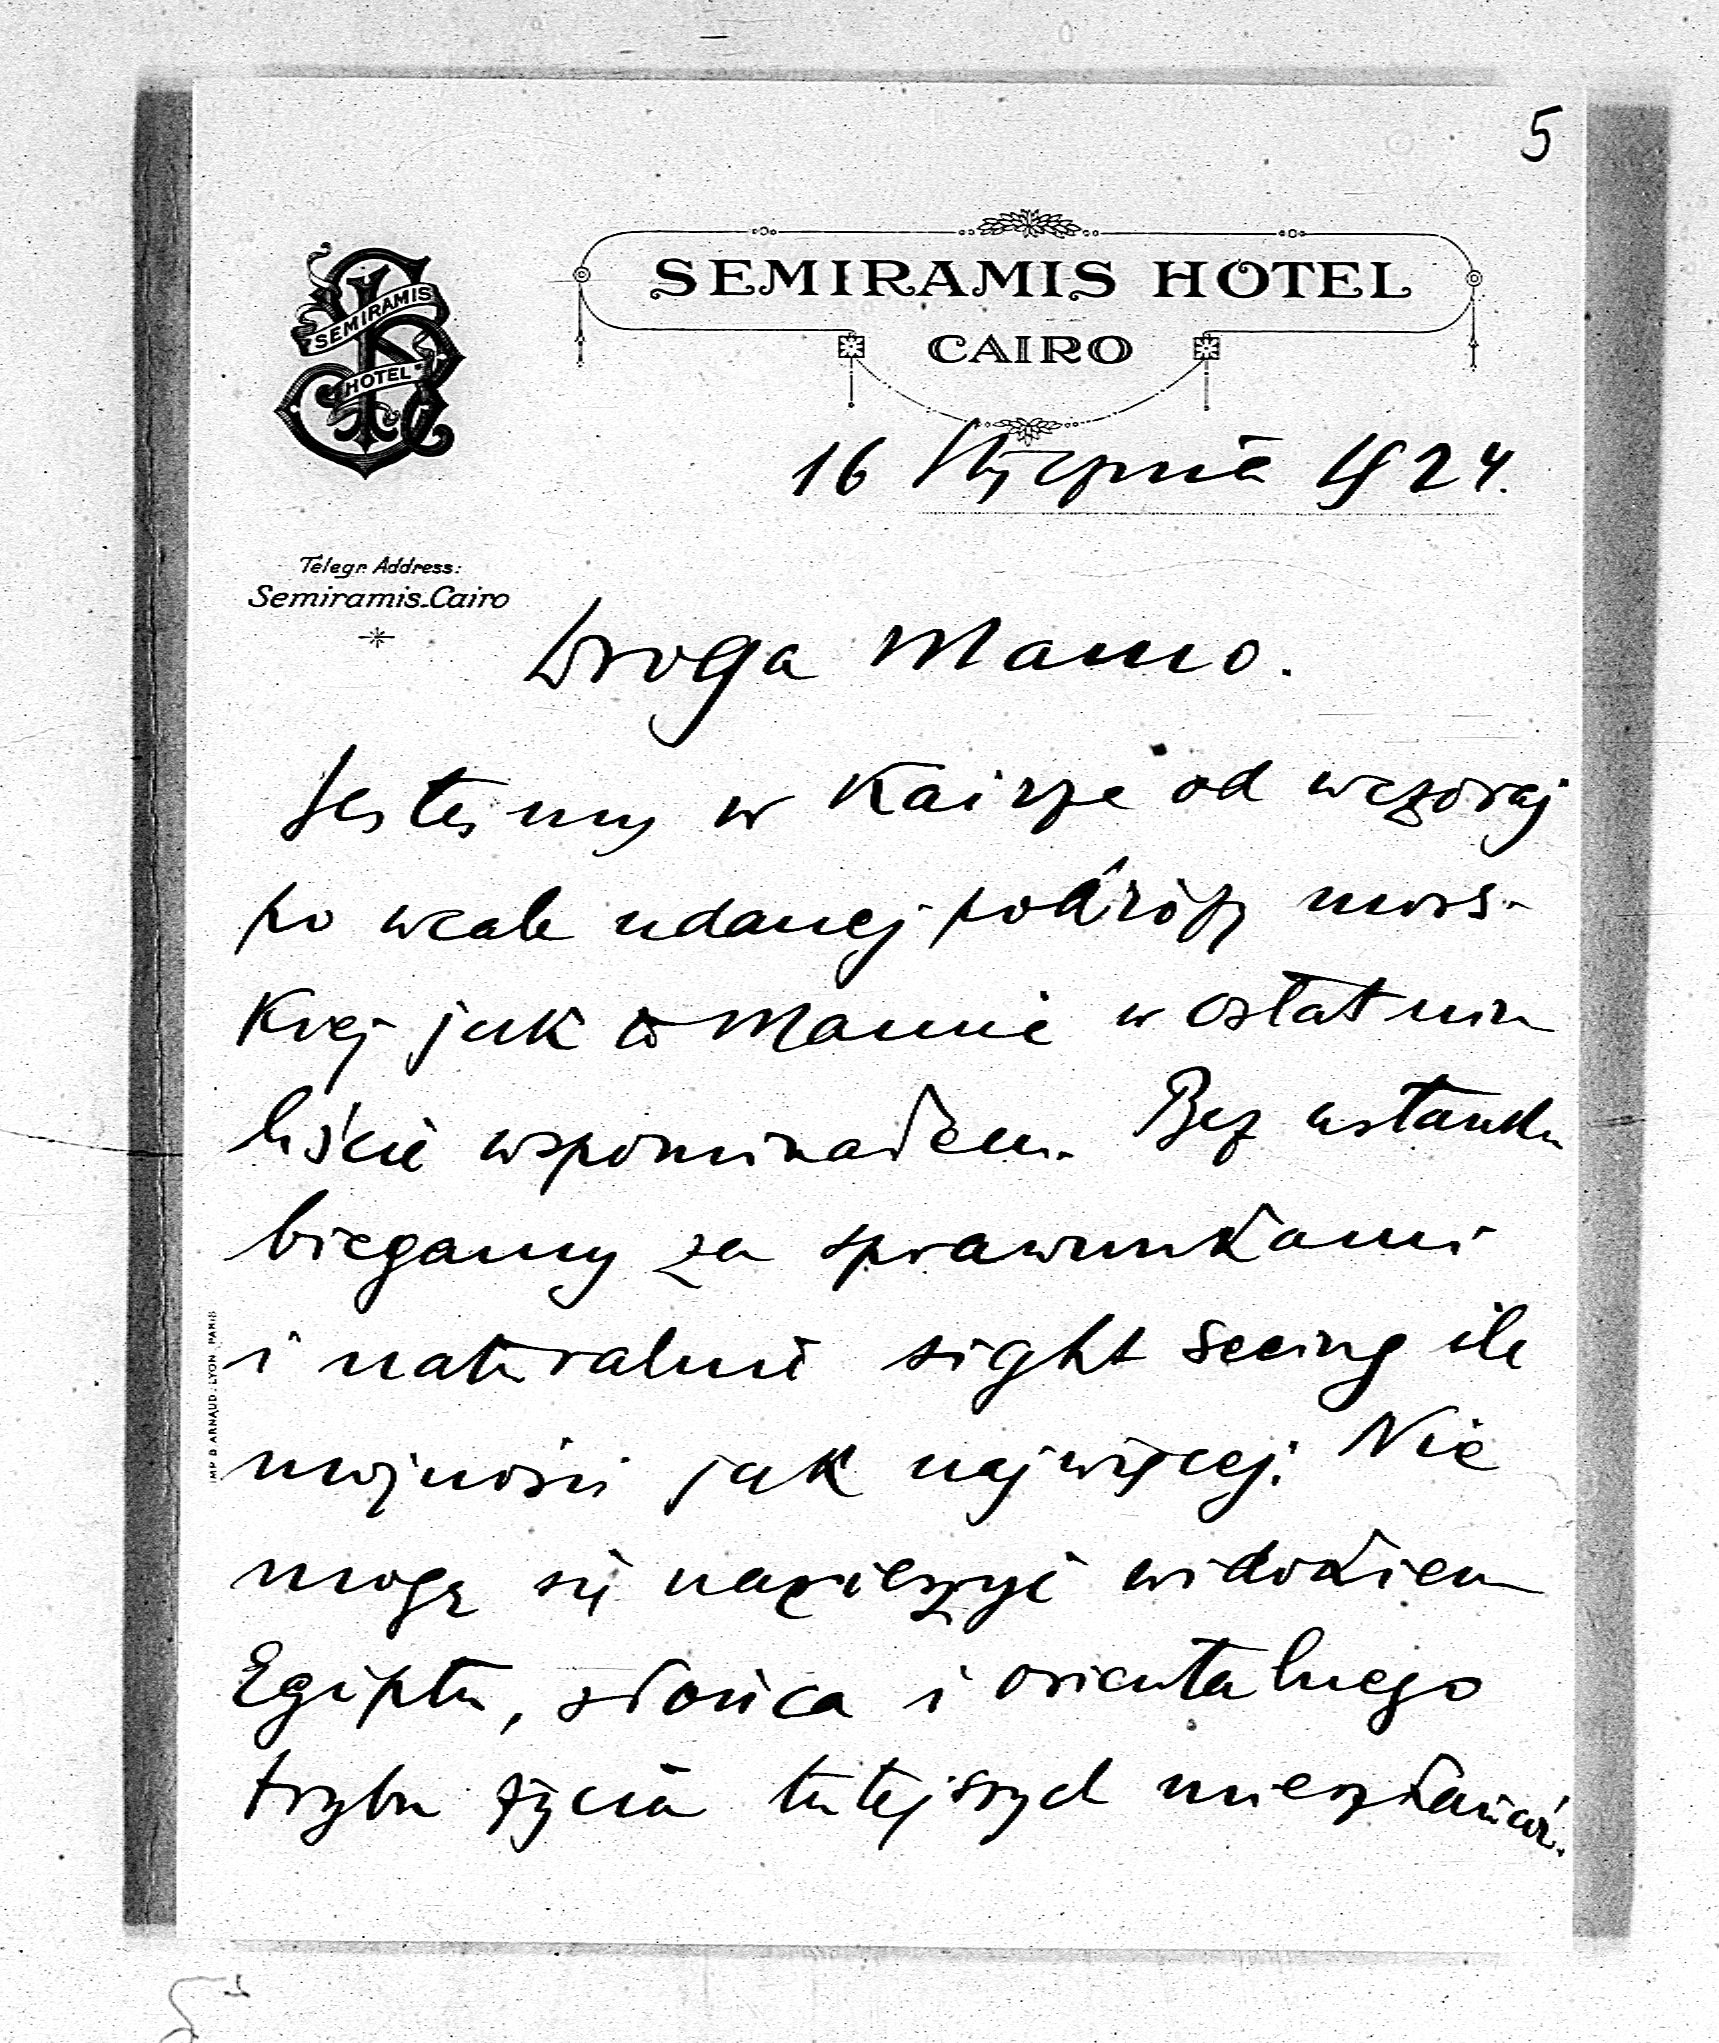 5
SEMIRAMIS HOTEL
SEMIRAMIS
HOTEL
CAIRO
16 Stycznia 1924.
Telegr. Address:
Semiramis-Cairo
Droga Mamo.
Jesteśmy w Kairze od wczoraj
po wcale udanej podróży mors-
kiej jak to Mamie w ostatnim
liście wspominałem. Bez ustanku
biegamy za sprawunkami
i naturalnie sight seeing ile
możności jak najwięcej. Nie
mogę się nacieszyć widokiem
Egiptu, słońca i orientalnego
trybu życia tutejszych mieszkańców.
IMP. B. ARNAUD. LYON PARIS